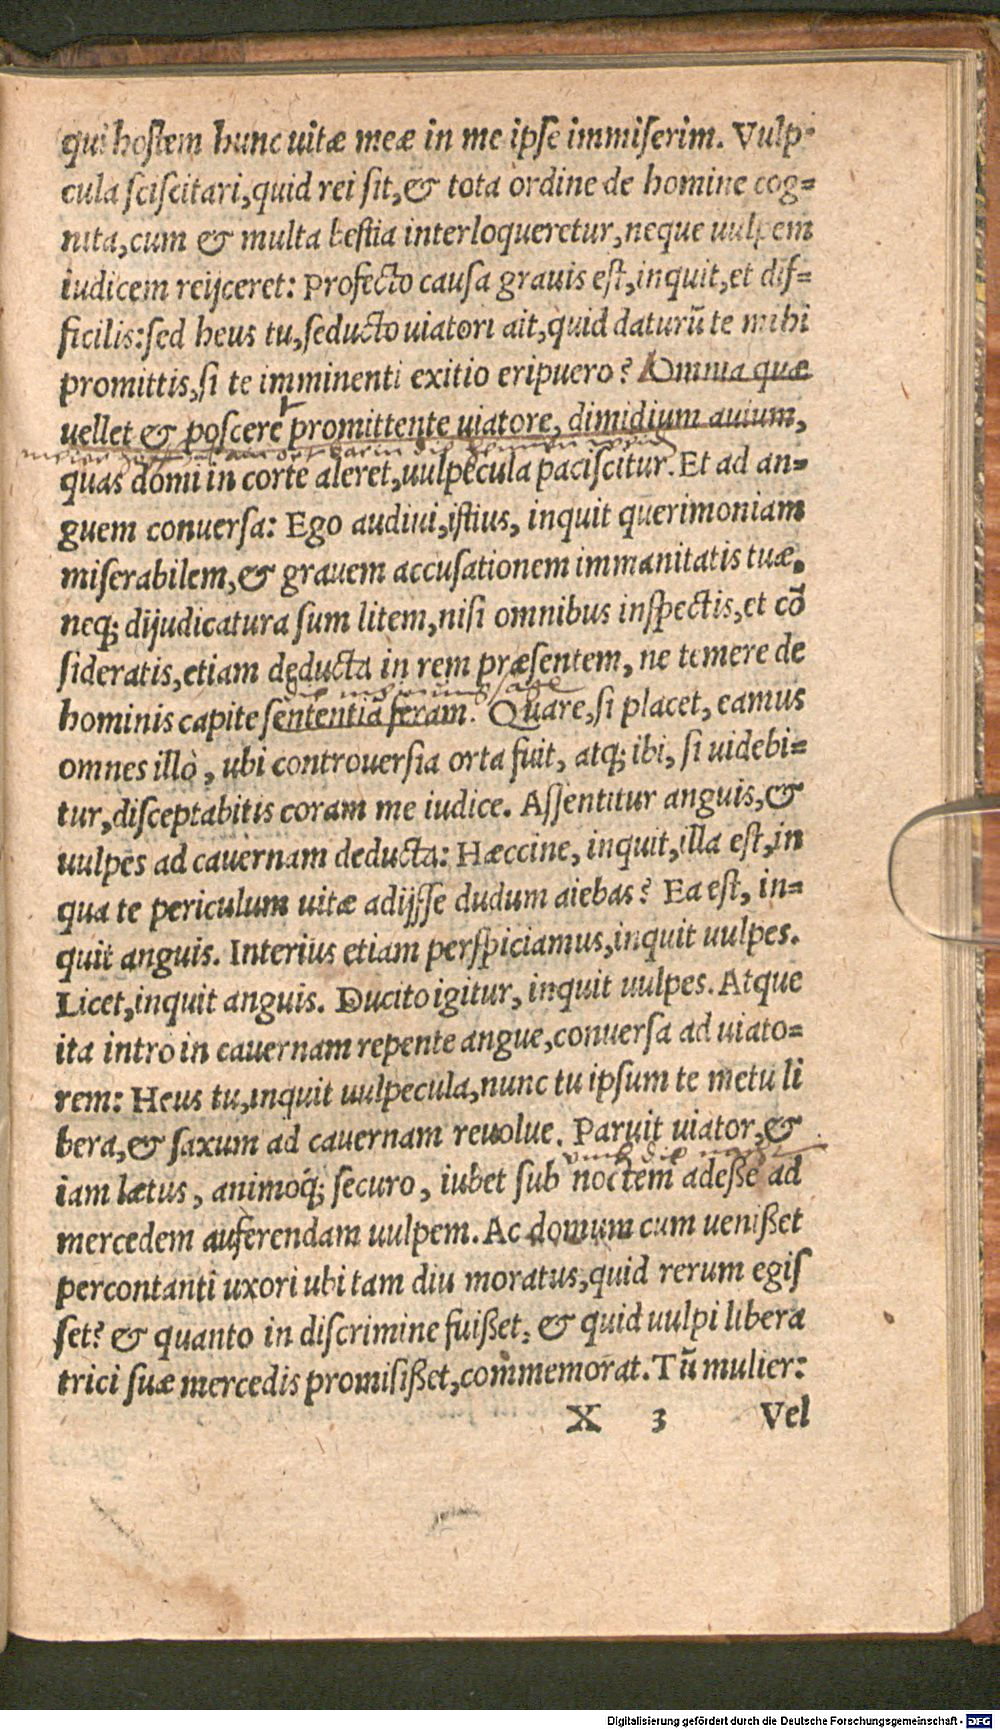 qui hostem hunc uitæ meæ in me ipse immiserim. Vulp
cula sciscitari, quid rei sit, & tota ordine de homine cog=
nita, cum & multa bestia interloqueretur, neque uulpem
iudicem reijceret: Profecto causa grauis est, inquit, et dif=
ficilis: sed heus tu, seducto uiatori ait, quid daturũ te mihi
promittis, si te imminenti exitio eripuero? Omnia quæ
uellet & poscere promittente uiatore, dimidium auium,
quas domi in corte aleret, uulpecula paciscitur. Et ad an=
guem conuersa: Ego audiui, istius, inquit querimoniam
miserabilem, & grauem accusationem immanitatis tuæ.
neq; dijudicatura sum litem, nisi omnibus inspectis, et cõ
sideratis, etiam deducta in rem præsentem, ne temere de
hominis capite sententiã feram. Quare, si placet, eamus
omnes illò, ubi controuersia orta fuit, atq; ibi, si uidebi=
tur, disceptabitis coram me iudice. Assentitur anguis, &
uulpes ad cauernam deducta: Hæccine, inquit, illa est, in
qua te periculum uitæ adijsse dudum aiebas? Ea est, in=
quit anguis. Interius etiam perspiciamus, inquit uulpes.
Licet, inquit anguis. Ducito igitur, inquit uulpes. Atque
ita intrò in cauernam repente angue, conuersa ad uiato=
rem: Heus tu, inquit uulpecula, nunc tu ipsum te metu li
bera, & saxum ad cauernam reuolue. Paruit uiator, &
iam lætus, animoq́; securo, iubet sub noctem adeße ad
mercedem auferendam uulpem. Ac domum cum uenißet
percontanti uxori ubi tam diu moratus, quid rerum egis
set? & quanto in discrimine fuißet, & quid uulpi libera
trici suæ mercedis promisißet, commemorat. Tũ mulier:
X 3 Vel
Digitalisierung gefördert durch die Deutsche Forschungsgemeinschaft - DFG